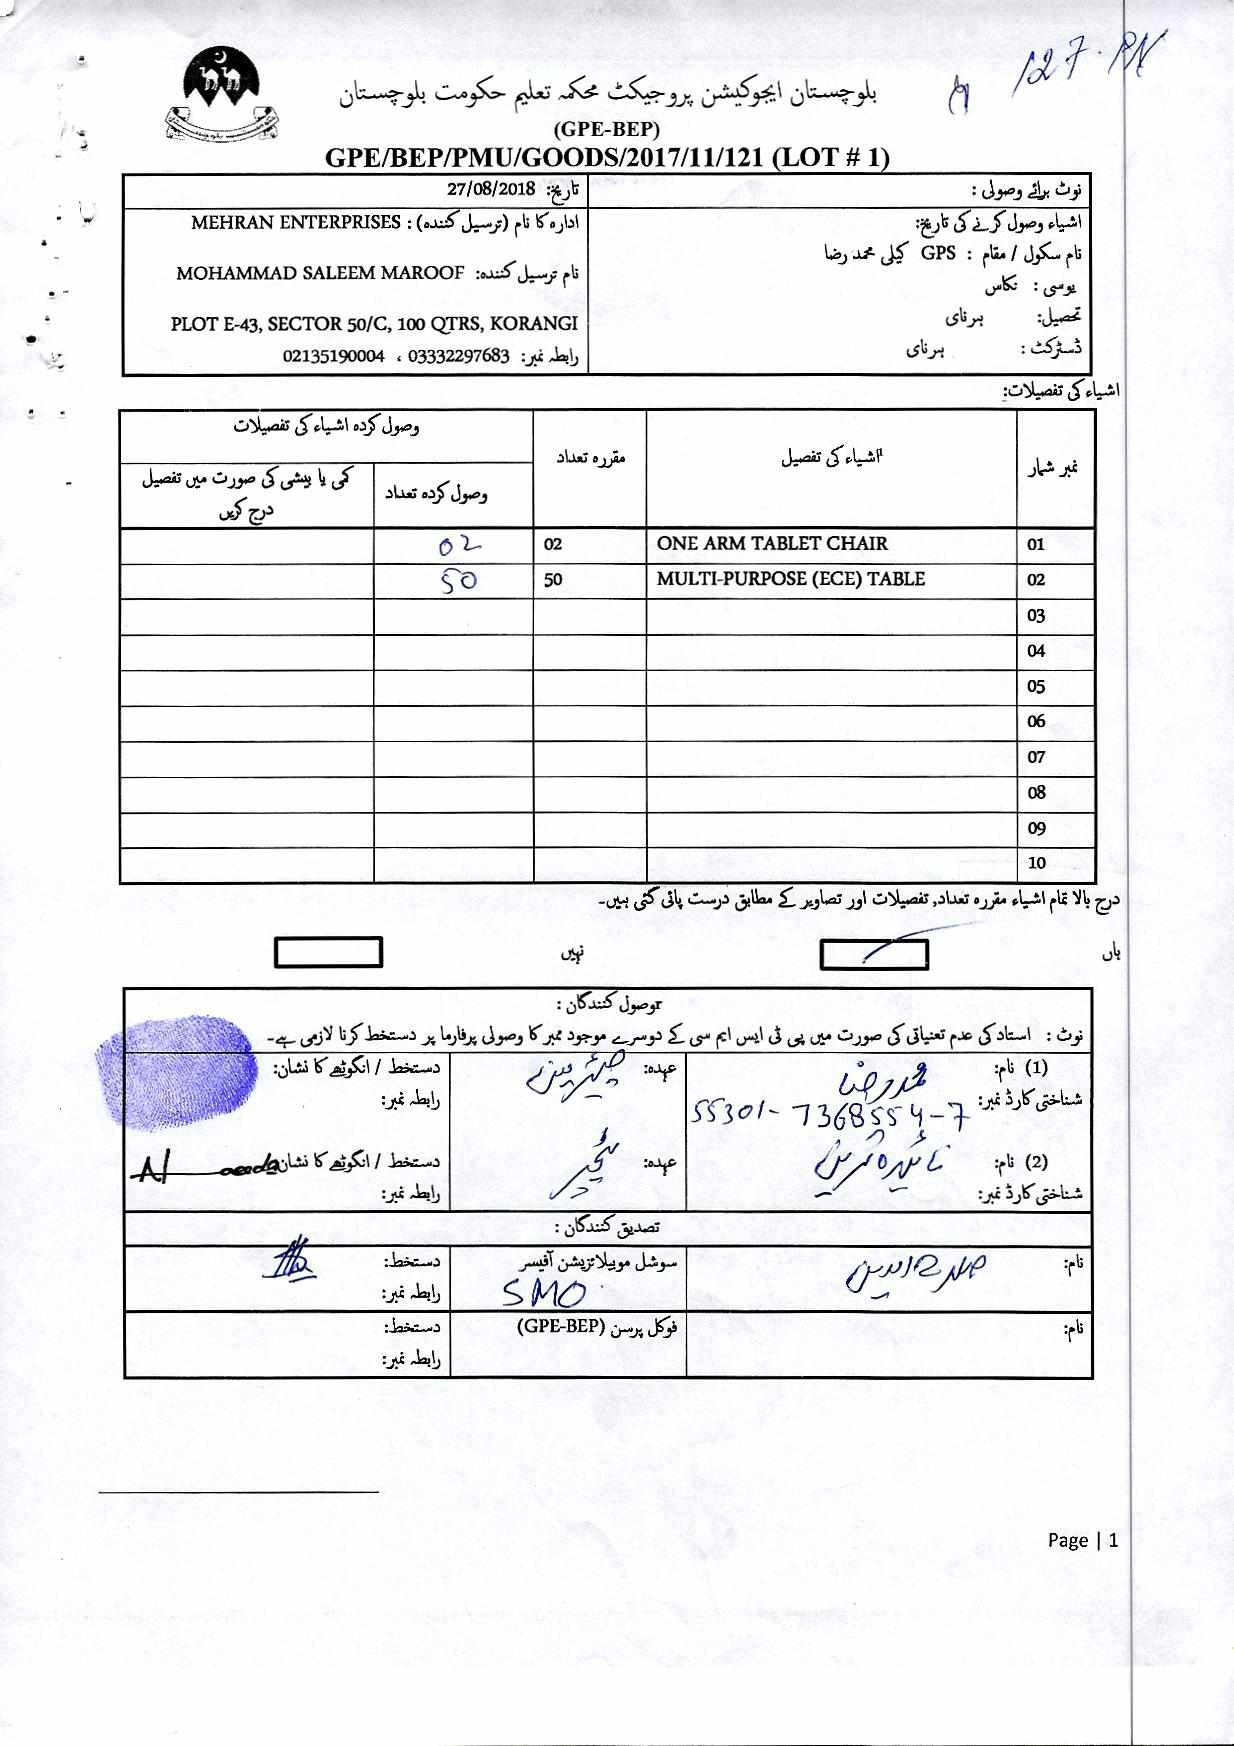 127-PN
بلوچستان ایجوکیشن پروجیکٹ محکمہ تعلیم حکومت بلوچستان
(GPE-BEP)
GPE/BEP/PMU/GOODS/2017/11/121 (LOT # 1)
نوٹ برائے وصولی :
تاریخ: 27/08/2018
اشیاء وصول کرنے کی تاریخ:
ادارہ کا نام (ترسیل کنندہ) : MEHRAN ENTERPRISES
نام سکول / مقام : GPS کیلی محمد رضا
نام ترسیل کنندہ: MOHAMMAD SALEEM MAROOF
یوسی : تکاس
تحصیل: ہرنای
PLOT E-43, SECTOR 50/C, 100 QTRS, KORANGI
ڈسٹرکٹ : ہرنای
رابطہ نمبر: 03332297683 ، 02135190004
اشیاء کی تفصیلات:
نمبر شمار اشیاء کی تفصیل مقررہ تعداد وصول کردہ اشیاء کی تفصیلات
وصول کردہ تعداد کمی یا بیشی کی صورت میں تفصیل درج کریں
01 ONE ARM TABLET CHAIR 02 02
02 MULTI-PURPOSE (ECE) TABLE 50 50
03
04
05
06
07
08
09
10
درج بالا تمام اشیاء مقررہ تعداد, تفصیلات اور تصاویر کے مطابق درست پائی گئی ہیں۔
ہاں نہیں
وصول کنندگان :
نوٹ : استاد کی عدم تعنیاتی کی صورت میں پی ٹی ایس ایم سی کے دوسرے موجود ممبر کا وصولی پرفارما پر دستخط کرنا لازمی ہے۔
(1) نام: محمد رضا عہدہ: چئیرمین دستخط / انگوٹھے کا نشان:
شناختی کارڈ نمبر: 55301-7368554-7 رابطہ نمبر:
(2) نام: عہدہ: ٹیچر دستخط / انگوٹھے کا نشان
شناختی کارڈ نمبر: رابطہ نمبر:
تصدیق کنندگان :
نام: سوشل موبیلائزیشن آفیسر دستخط:
SMO رابطہ نمبر:
نام: فوکل پرسن (GPE-BEP) دستخط:
رابطہ نمبر:
Page | 1